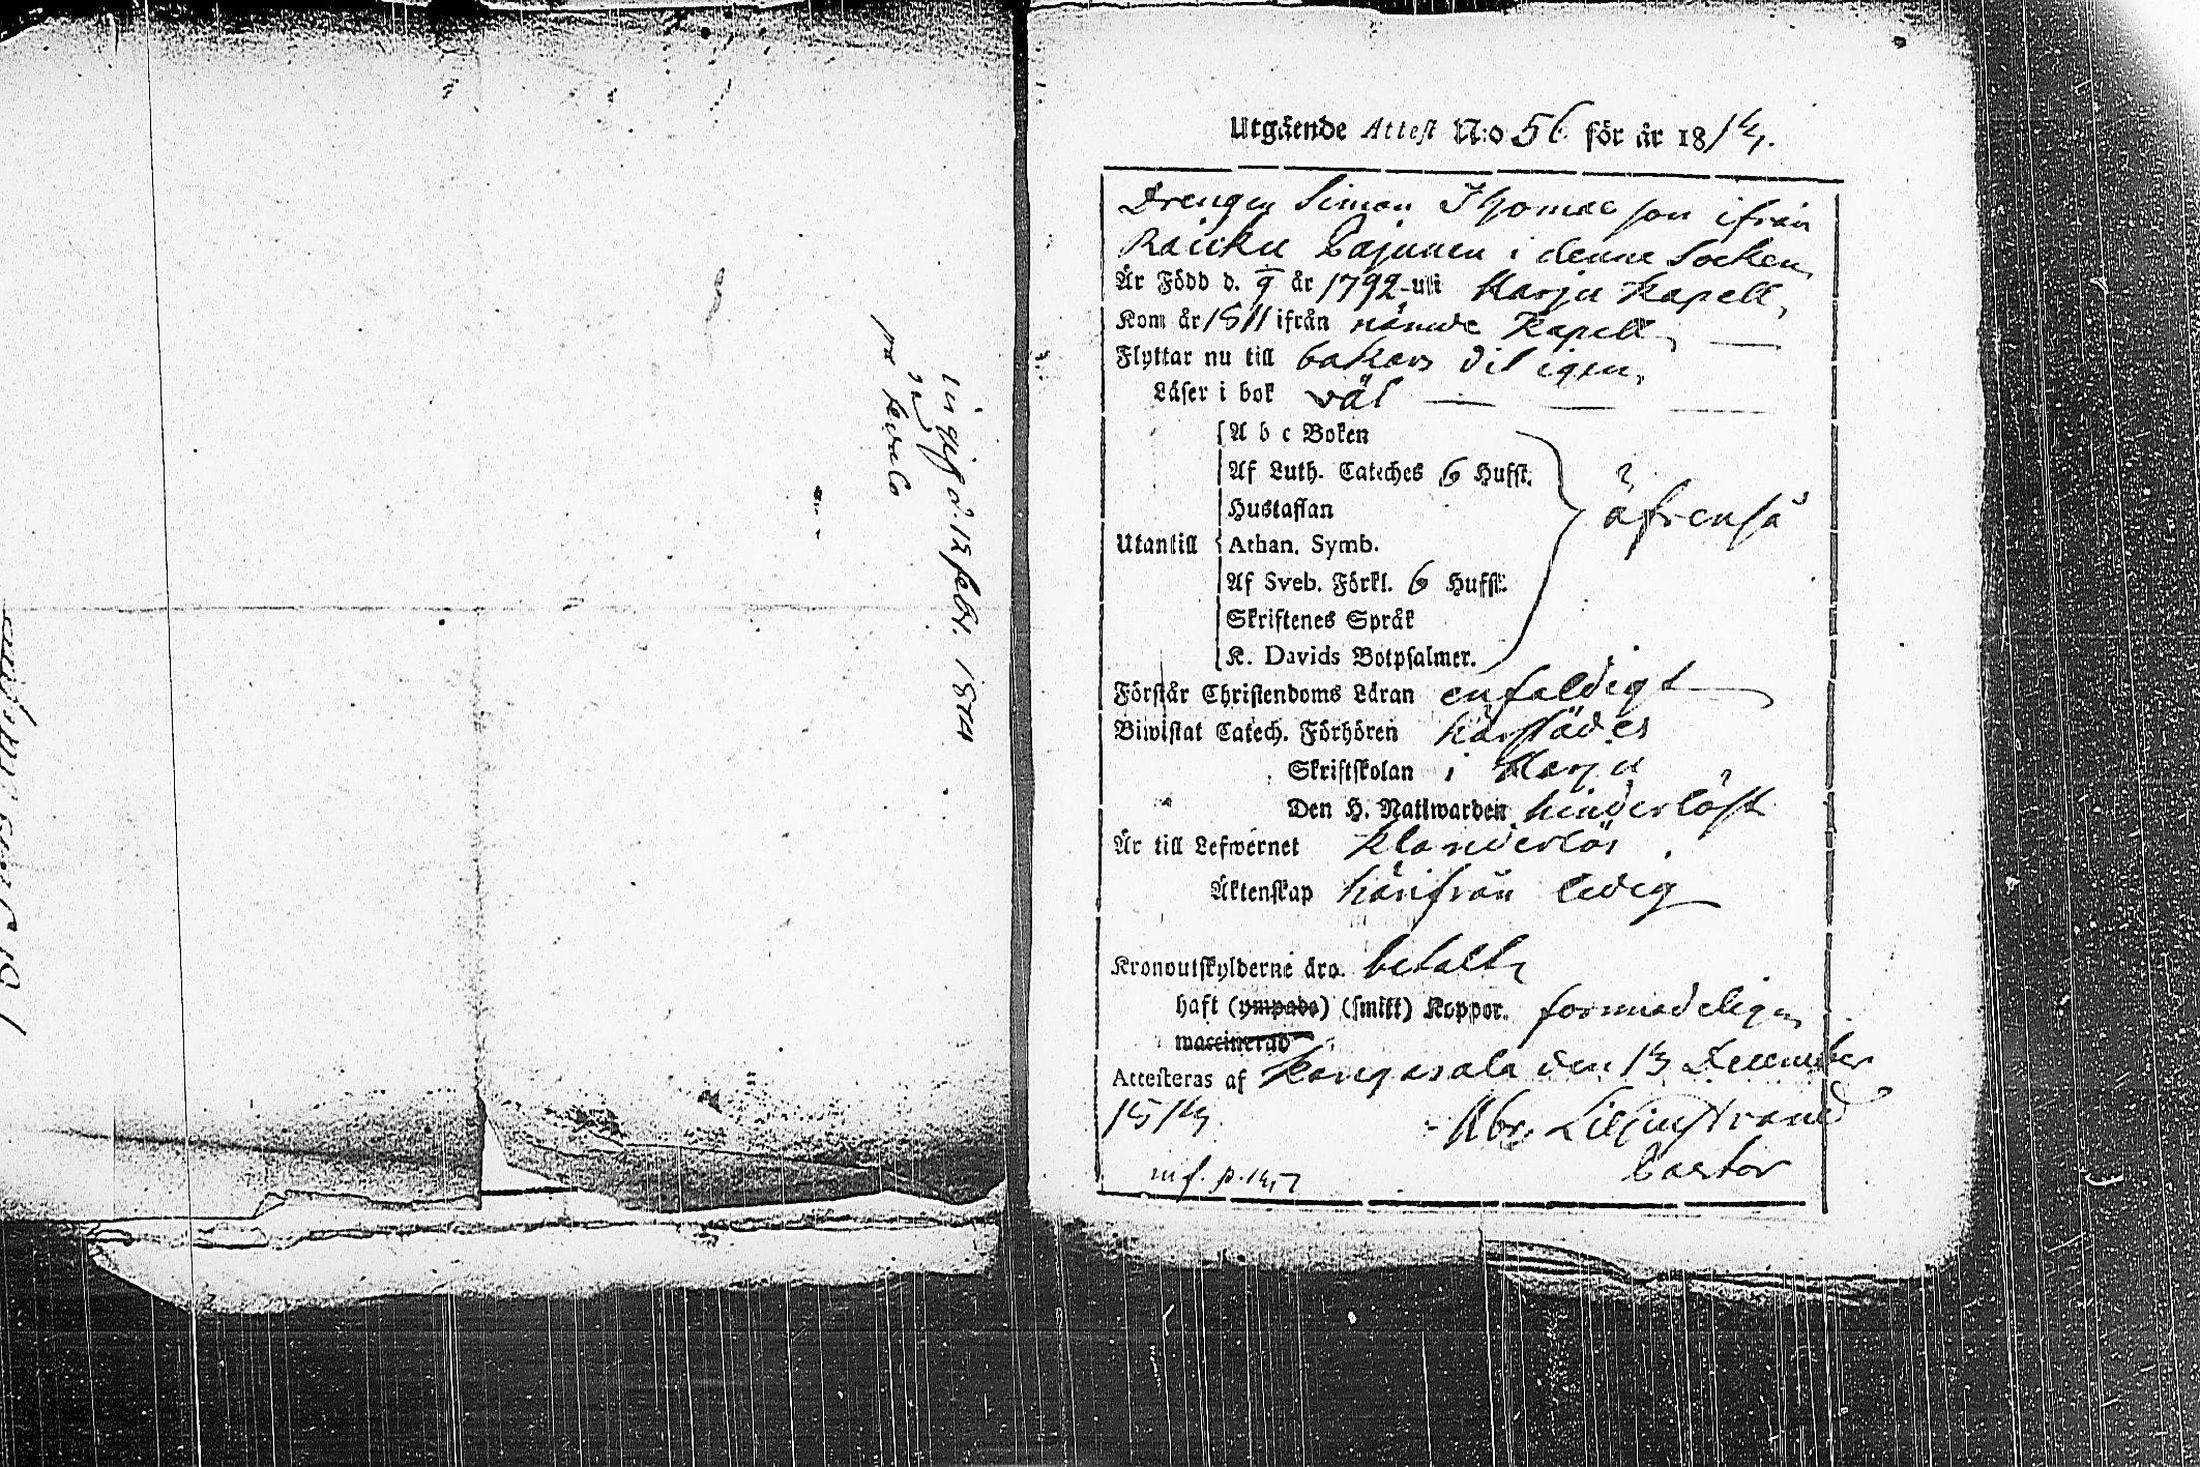 ingifv. d. 12 febr. 1814
på
Utgående Attest N:o 56 för år 1814.
Drengen Simon Thomas son ifrån
Rauku Pajunen i denne Socken,
Är Född d. 9 år 1792 uti Harju Kapell,
Kom år 1811 ifrån nämde Kapell,
Flyttar nu till bakers dit igen,
Läser i bok väl
A b c Boken
Af Luth. Cateches 6 Hufst.
Hustaflan
Utantill Athan. Symb.
Af Sveb. Förkl. 6 Hufst.
Skriftenes Språk
K. Davids Botpsalmer.
äfvenså
Förstår Christendoms Läran enfaldigt
Biwistat Catech. Förhören härstädes
Skriftskolan i Harju
Den H. Nattwarden hinderlöst
Är till Lefwernet klanderlös
Äktenskap härifrån ledig
Kronoutskylderne äro betalta
haft (ympade) (smitt) Koppor. förmodeligen
waccinerad
Attesteras af Kangasala den 13 December
1814 Abr. Liljestrand
Pastor